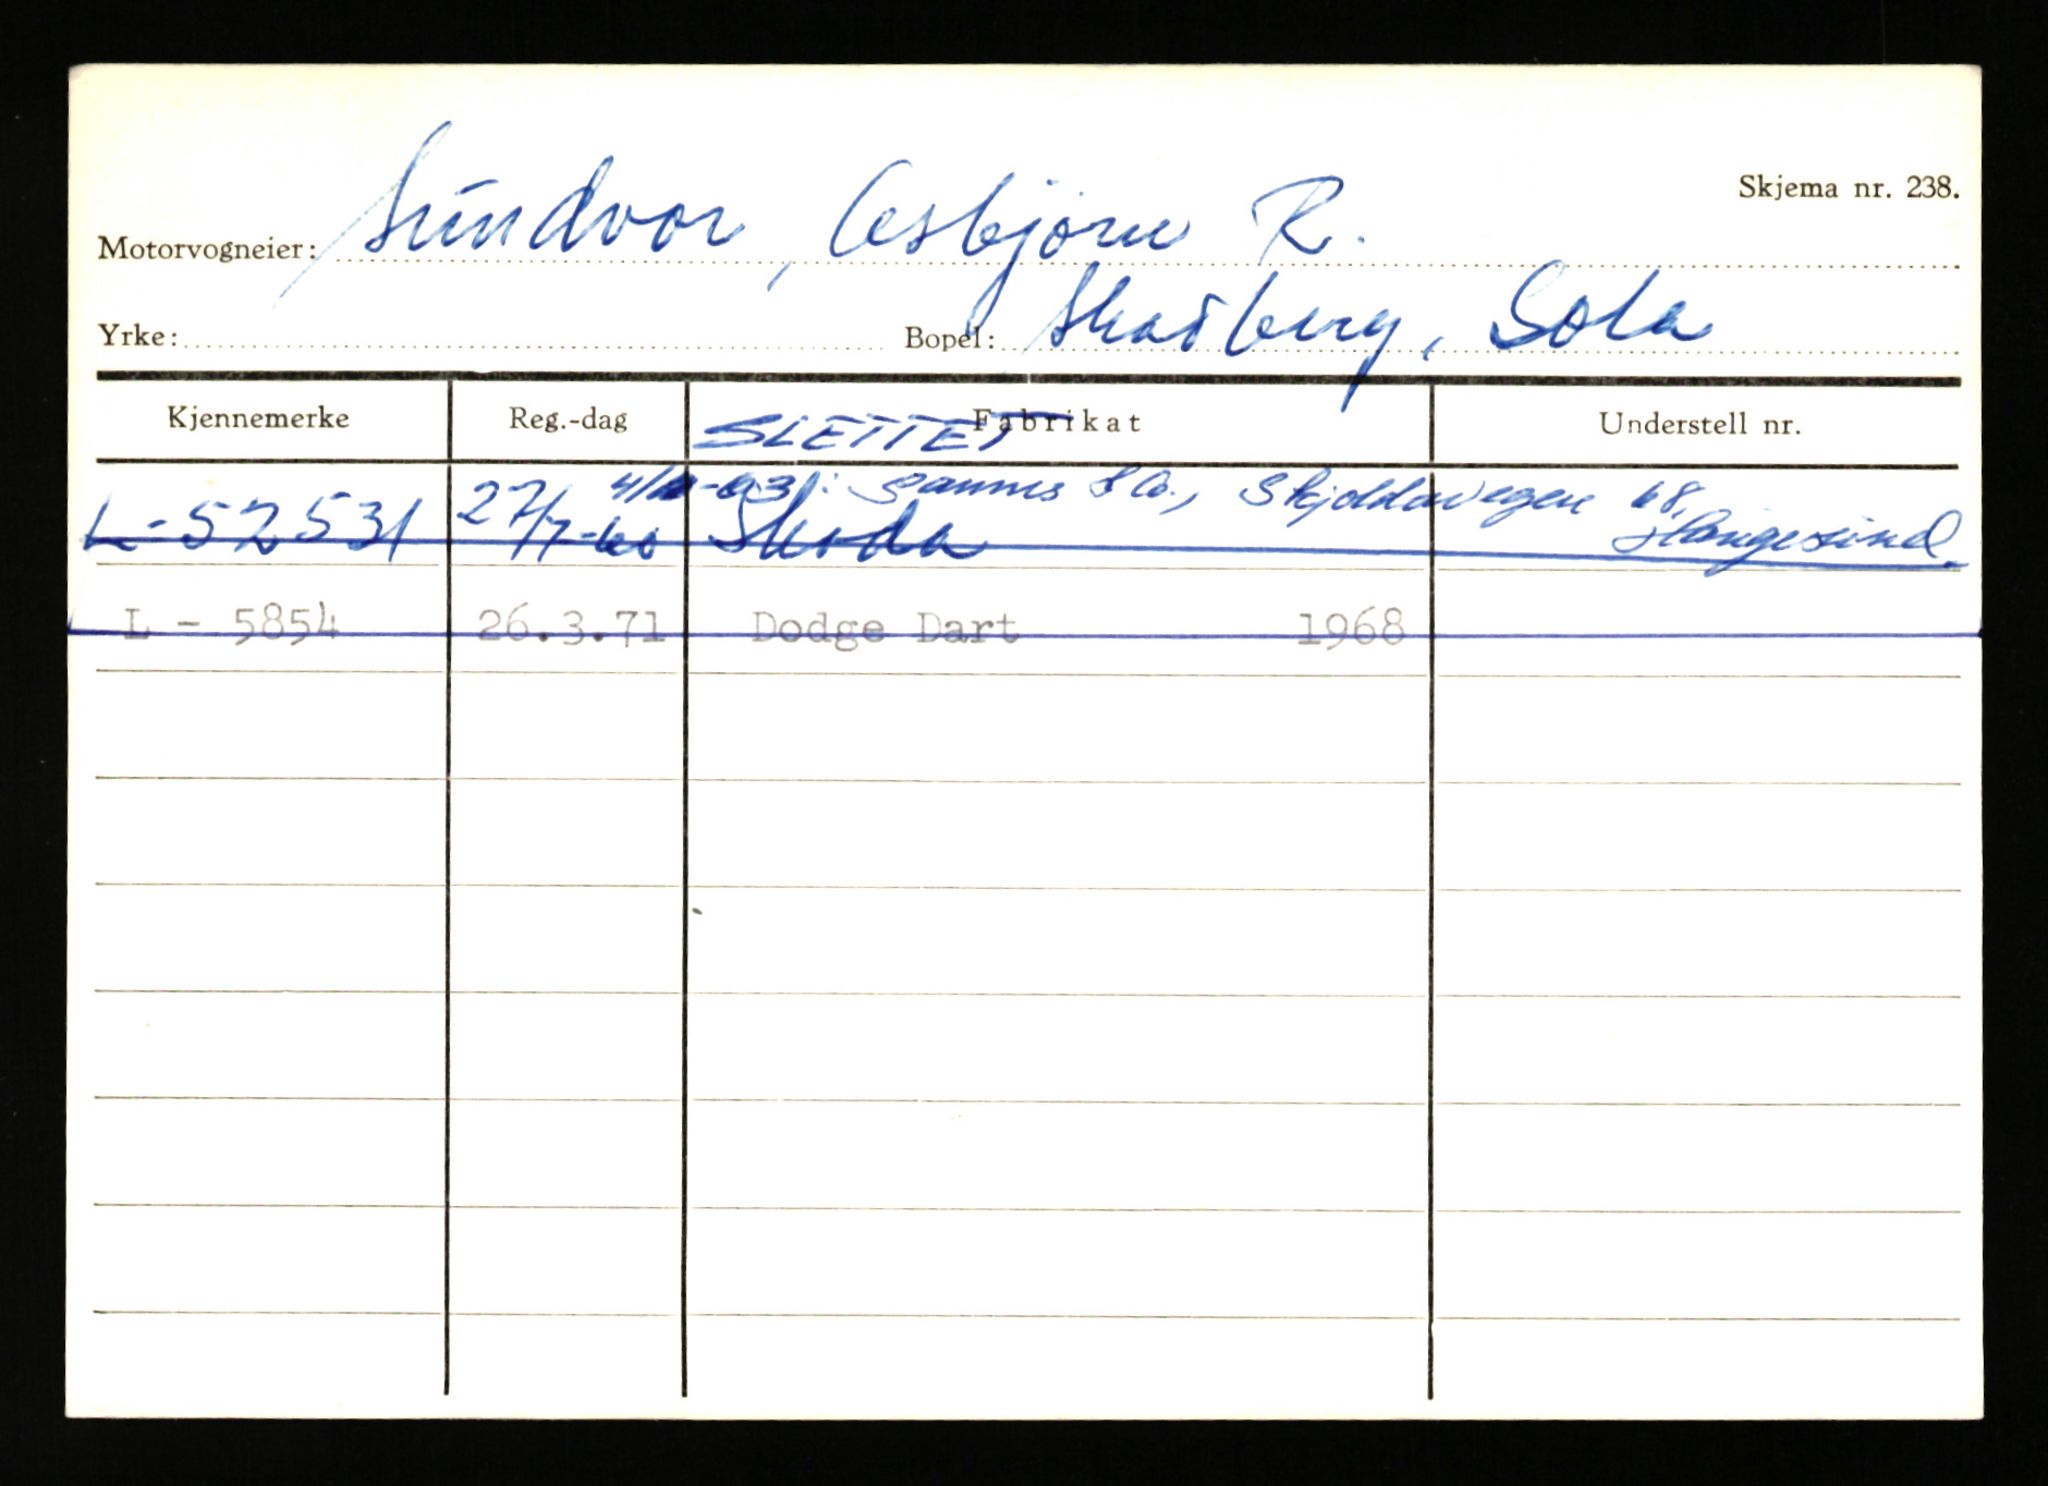 Skjema nr. 238.
Motorvogneier: Sundvor, Asbjörn R.
Yrke: Bopel: Skadberg, Sola
Kjennemerke Reg.-dag Fabrikat Understell nr.
SLETTET
4/ -63: & Co., Skjoldavegen 68, Haugesund.
L-52531 27/7-60 Skoda
L - 5854 26.3.71 Dodge Dart 1968